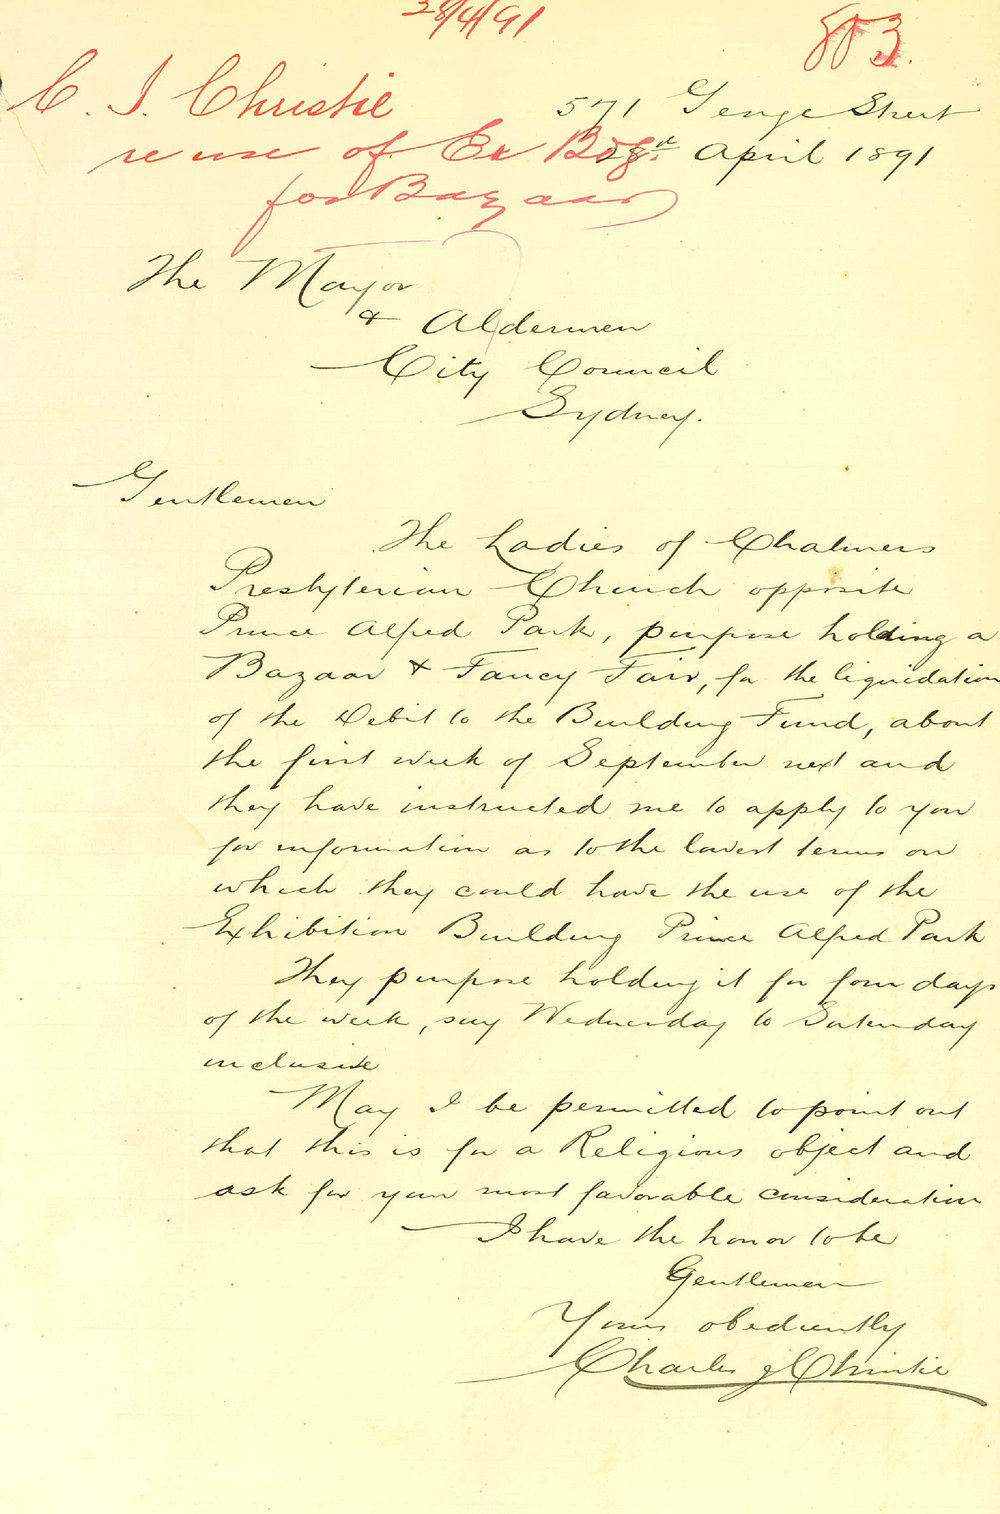 28/4/91
803.
C. J. Christie
re use of Ex Bdg.
for Bazaar
571 George Street
28th April 1891
The Mayor
& Aldermen
City Council
Sydney.
Gentlemen
The Ladies of Chalmers
Presbyterian Church opposite
Prince Alfred Park, purpose holding a
Bazaar & Fancy Fair, for the liquidation
of the Debit to the Building Fund, about
the first week of September next and
they have instructed me to apply to you
for information as to the lowest terms on
which they could have the use of the
Exhibition Building Prince Alfred Park
They purpose holding it for four days
of the week, say Wednesday to Saturday
inclusive
May I be permitted to point out
that this is for a Religious object and
ask for your most favorable consideration
I have the honor to be
Gentlemen
Yours obediently
Charles J Christie